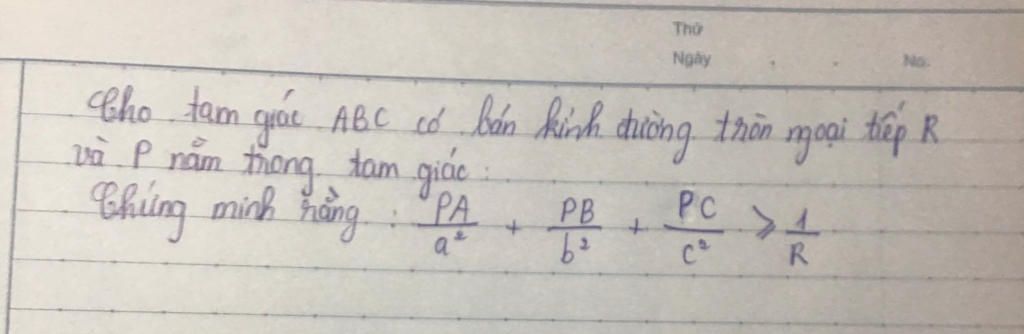 Thứ
Ngày . . No.
Cho tam giác ABC có bán kính đường tròn ngoại tiếp R
và P nằm trong tam giác :
Chứng minh rằng : PA/a² + PB/b² + PC/c² ⩾ 1/R